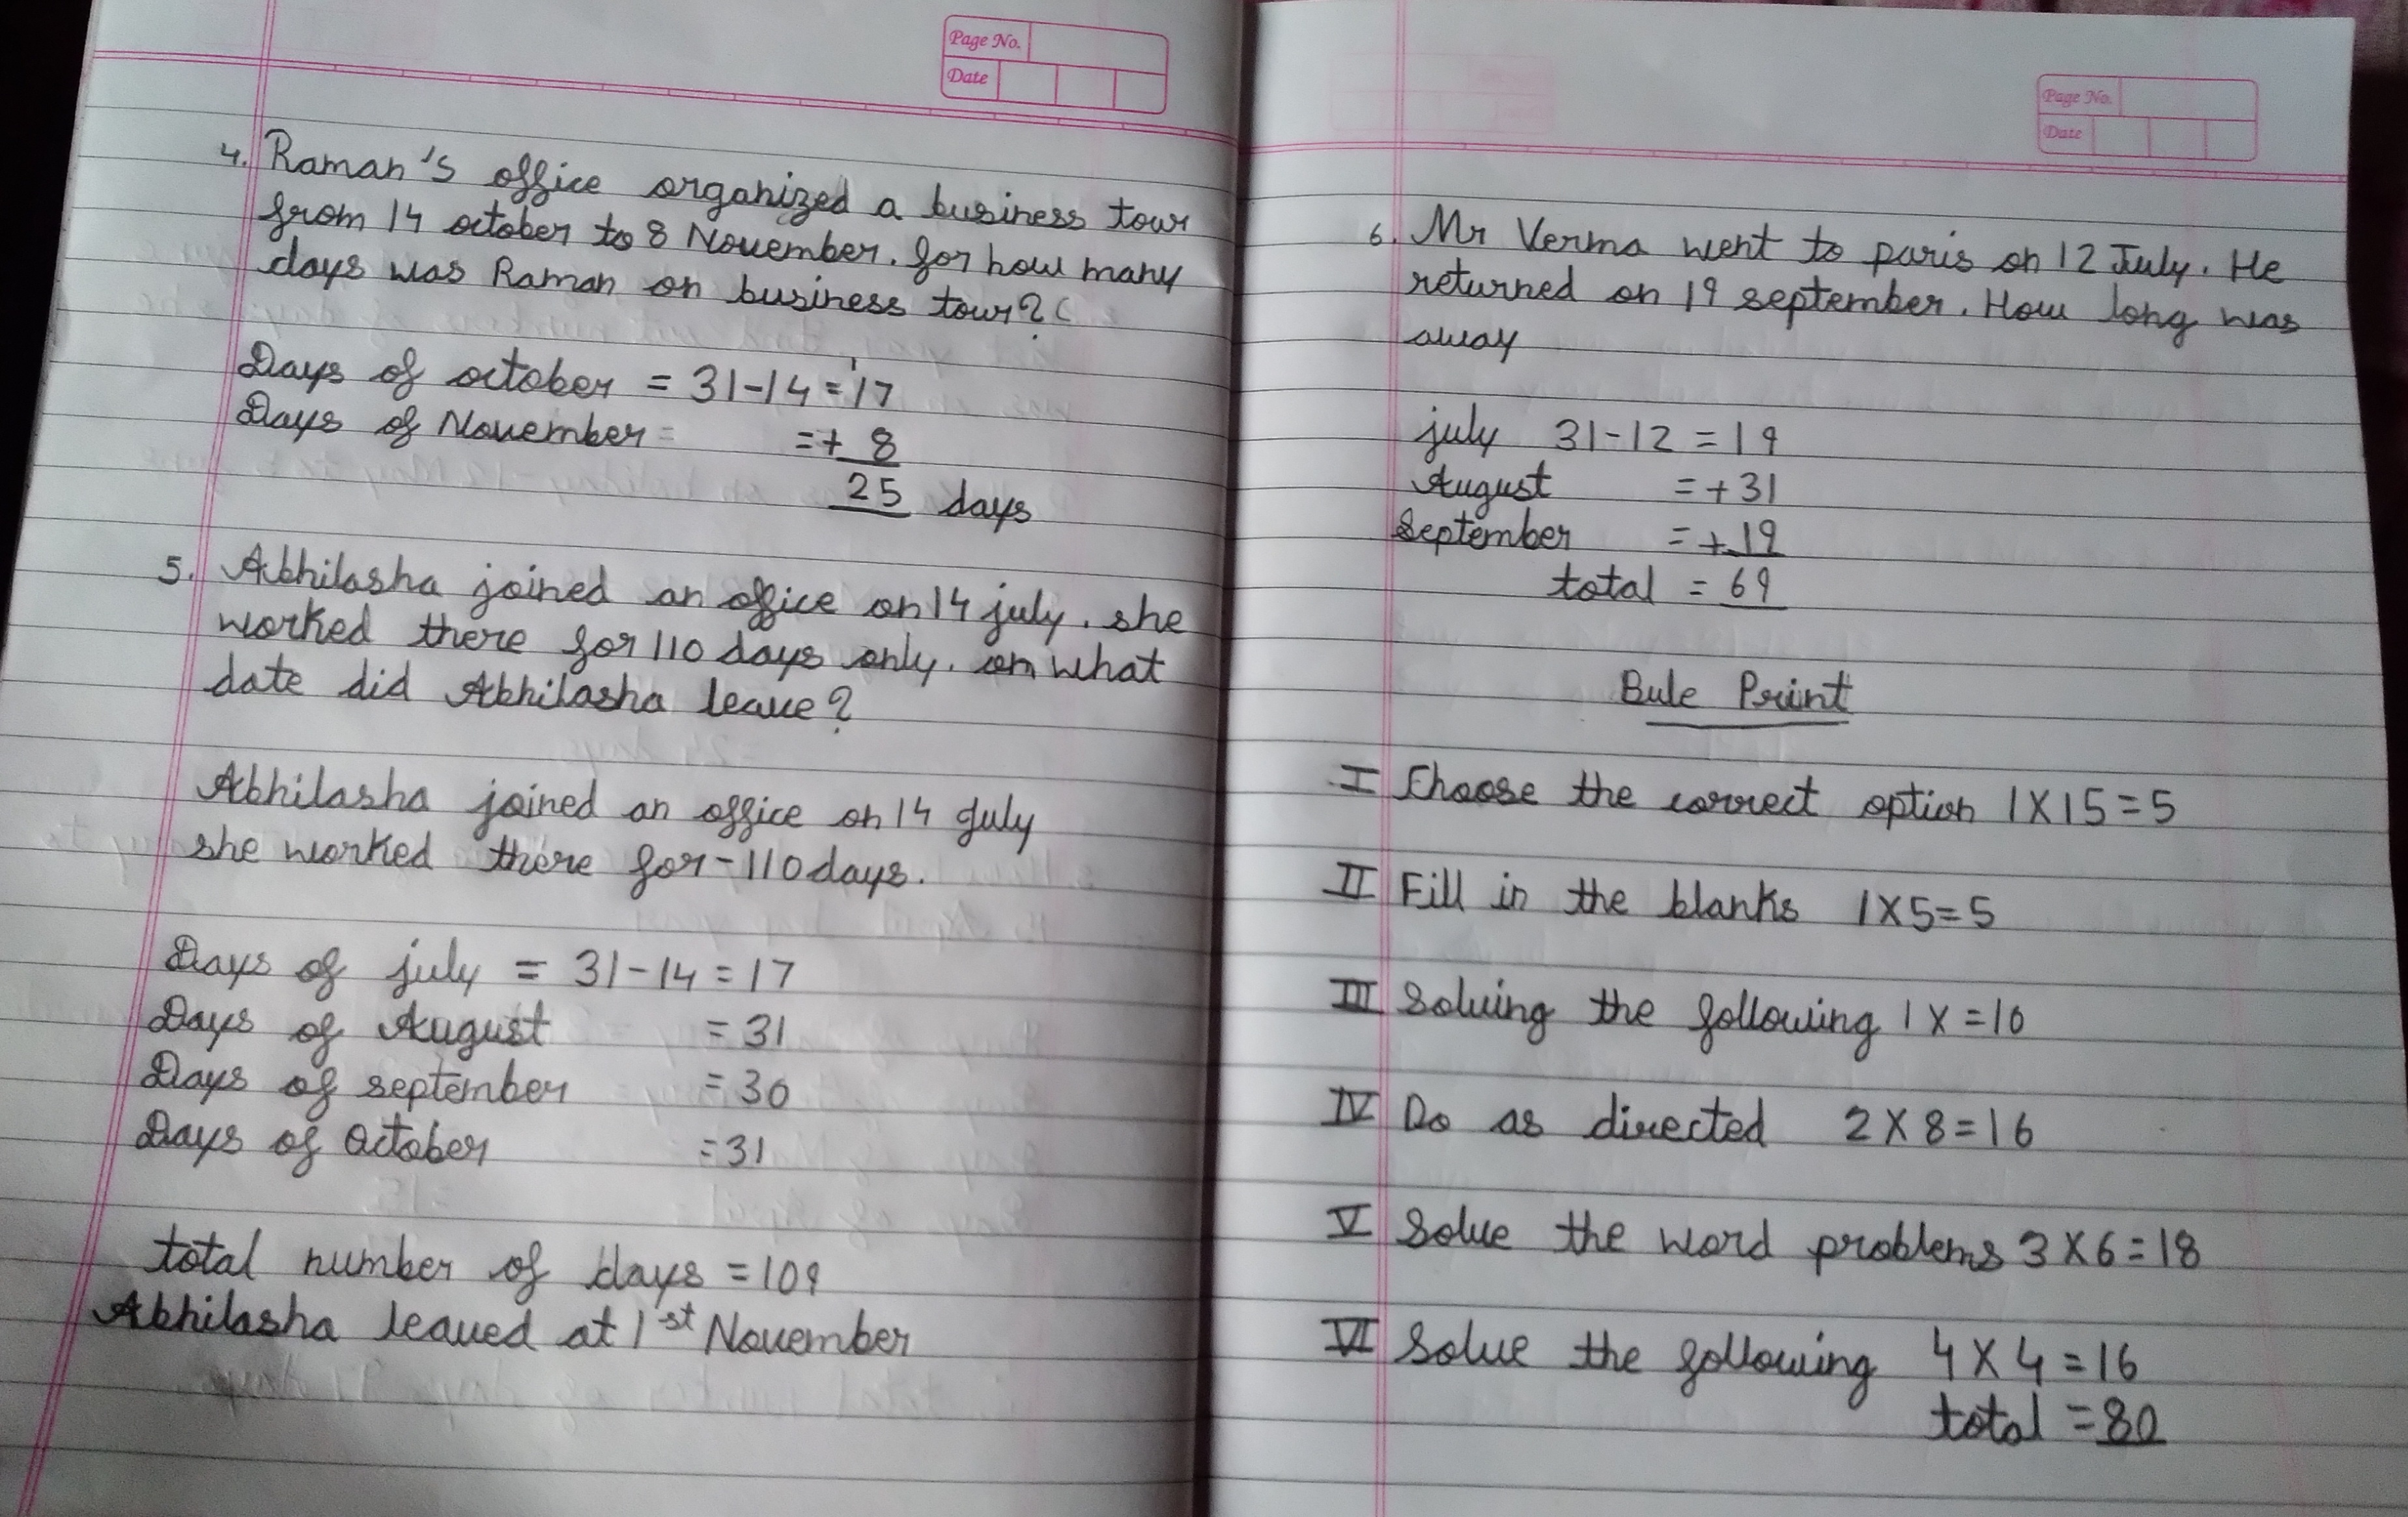 Page No.
Date
4. Raman's office organized a business tour
from 14 october to 8 November. for how many
days was Raman on business tour?
Days of october = 31-14 = 17
Days of November = = + 8
25 days
5. Abhilasha joined an office on 14 july. she
worked there for 110 days only. on what
date did Abhilasha leave?
Abhilasha joined an office on 14 july
she worked there for - 110 days.
Days of july = 31-14 = 17
Days of August = 31
Days of september = 30
Days of October = 31
total number of days = 109
Abhilasha leaved at 1st November
Page No.
Date
6. Mr Verma went to paris on 12 July. He
returned on 19 september. How long was
away
july 31-12 = 19
August = +31
September = +19
total = 69
Bule Print
I Choose the correct option 1X15=5
II Fill in the blanks 1X5=5
III Solving the following 1X=10
IV Do as directed 2X8=16
V Solve the word problems 3X6=18
VI Solve the following 4X4=16
total = 80